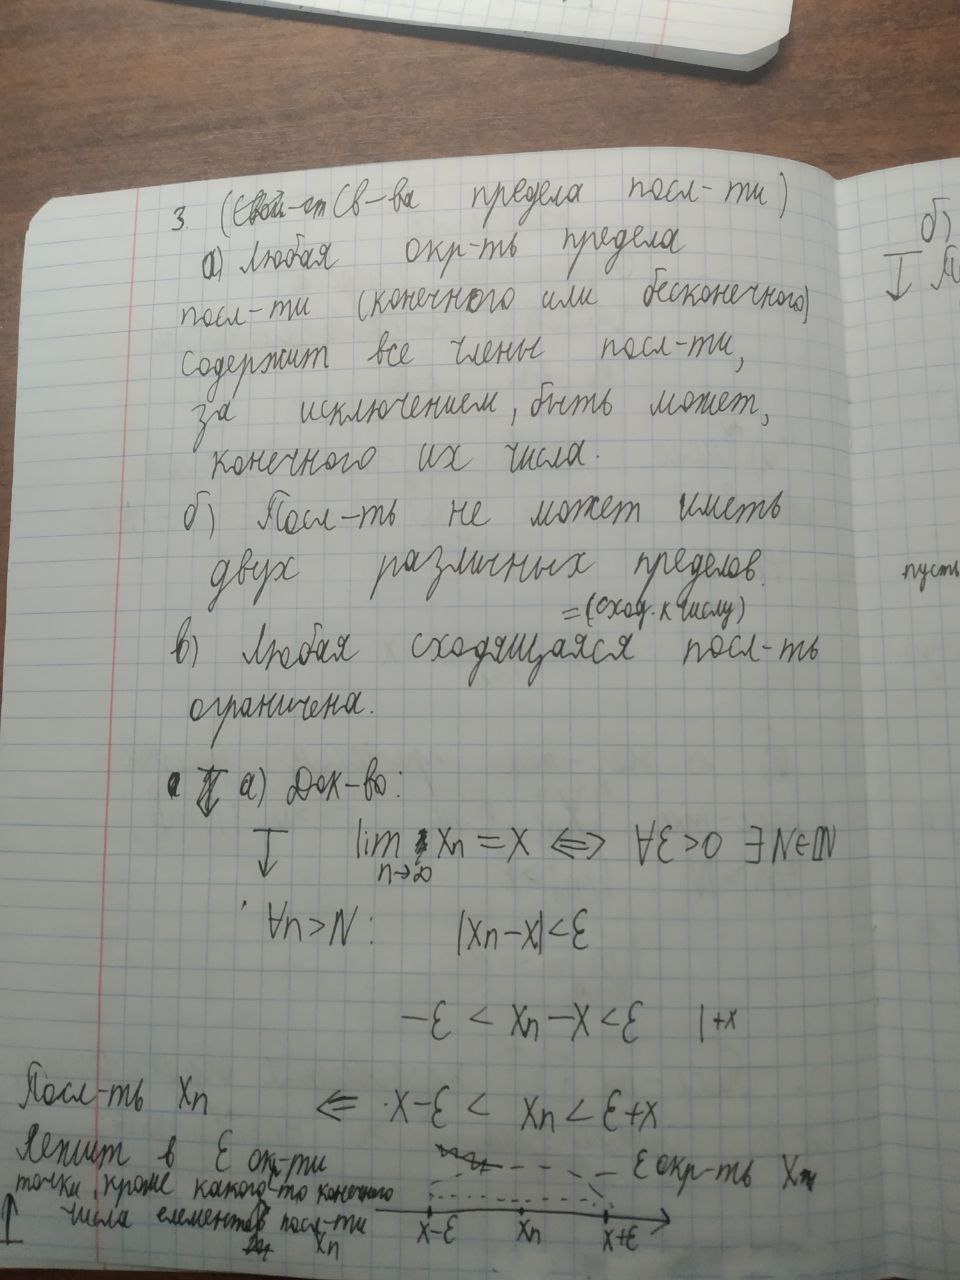 3. (Св-ва предела посл-ти)
а) Любая окр-ть предела
посл-ти (конечного или бесконечного)
содержит все члены посл-ти,
за исключением, быть может,
конечного их числа.
б) Посл-ть не может иметь
двух различных пределов.
=(сход. к числу)
в) Любая сходящаяся посл-ть
ограничена.
а) Док-во:
lim Xn = X ⇔ ∀ε>0 ∃N∈ℕ
n→∞
∀n>N: |Xn-X|<ε
-ε < Xn-X < ε |+x
Посл-ть Xn ⇐ X-ε < Xn < X+ε
Лежит в ε окр-ти
ε окр-ть Xn
точки, кроме какого-то конечного
числа елементов посл-ти
Xn
X-ε Xn X+ε
б)
пусть